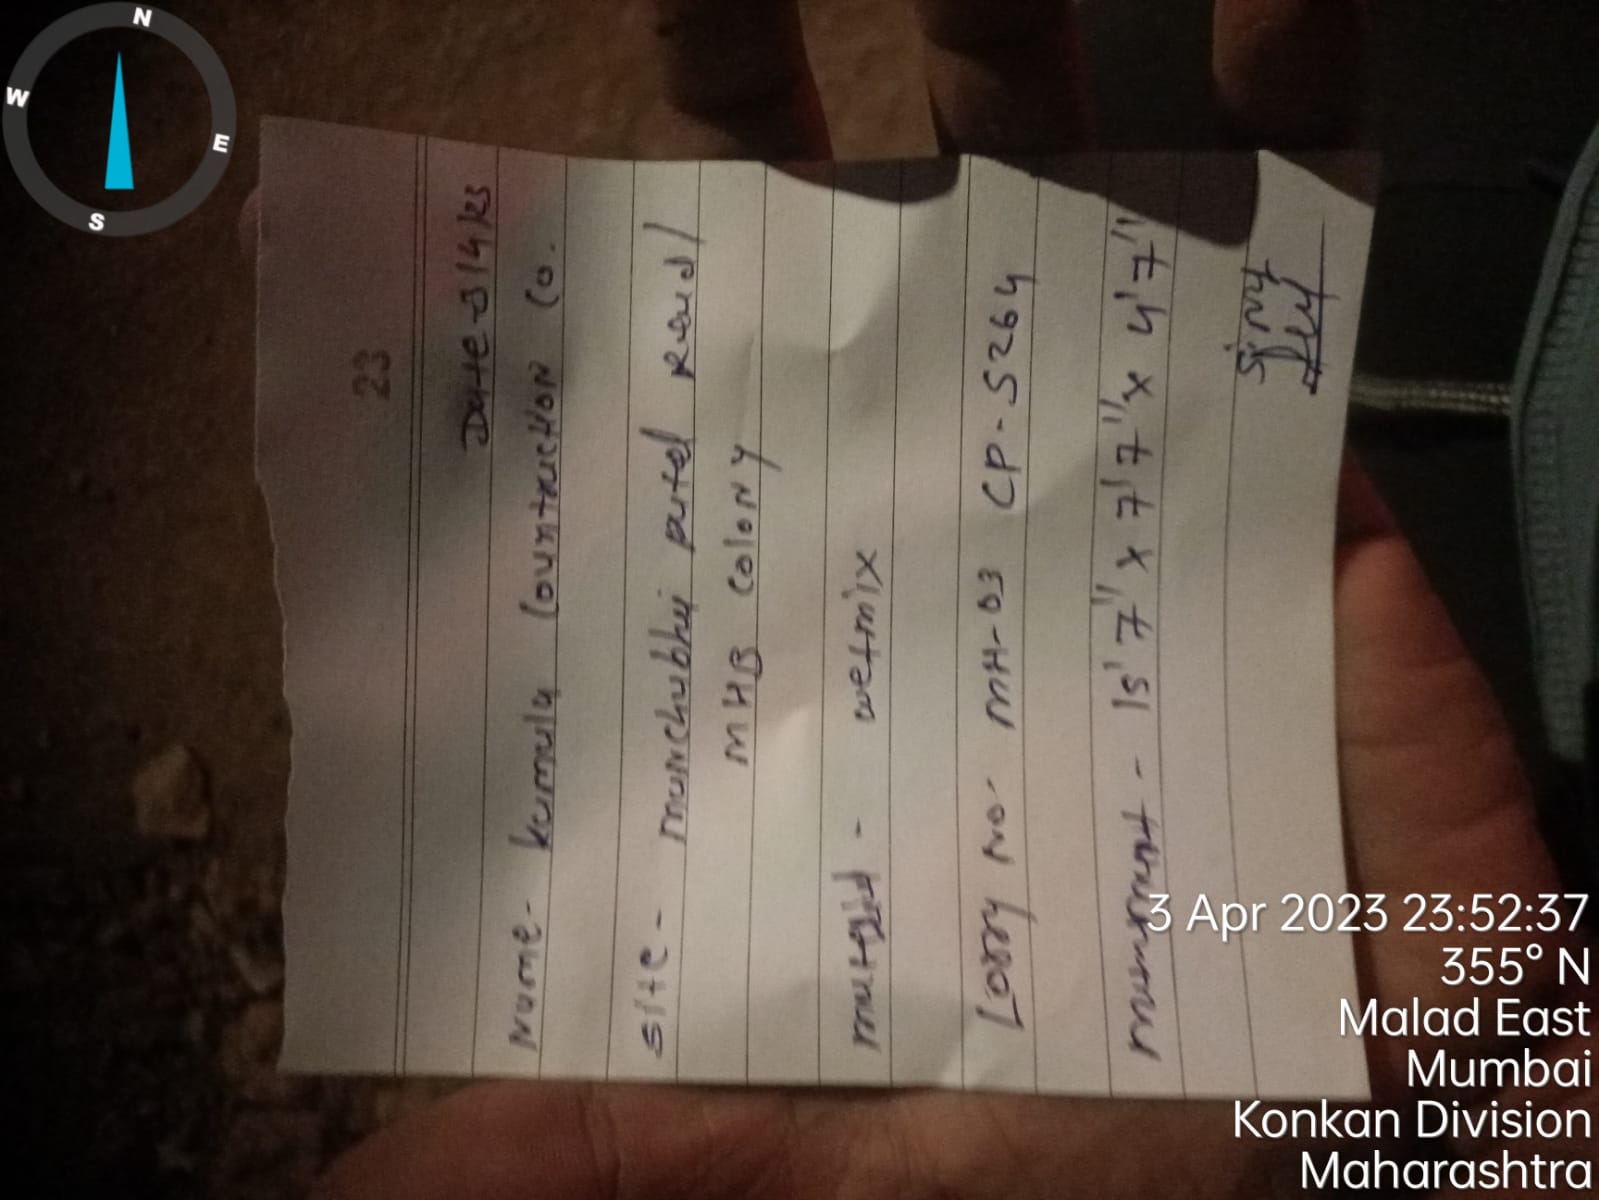 23
Date-3/4/23
Name- kumala Countruction Co.
Site- manchubhai patel Road/
MHB Colony
- wetmix
Lorry No- MH-03 CP-5264
- 15'7" x 7'7" x 4'7"
N
W
E
S
3 Apr 2023 23:52:37
355° N
Malad East
Mumbai
Konkan Division
Maharashtra